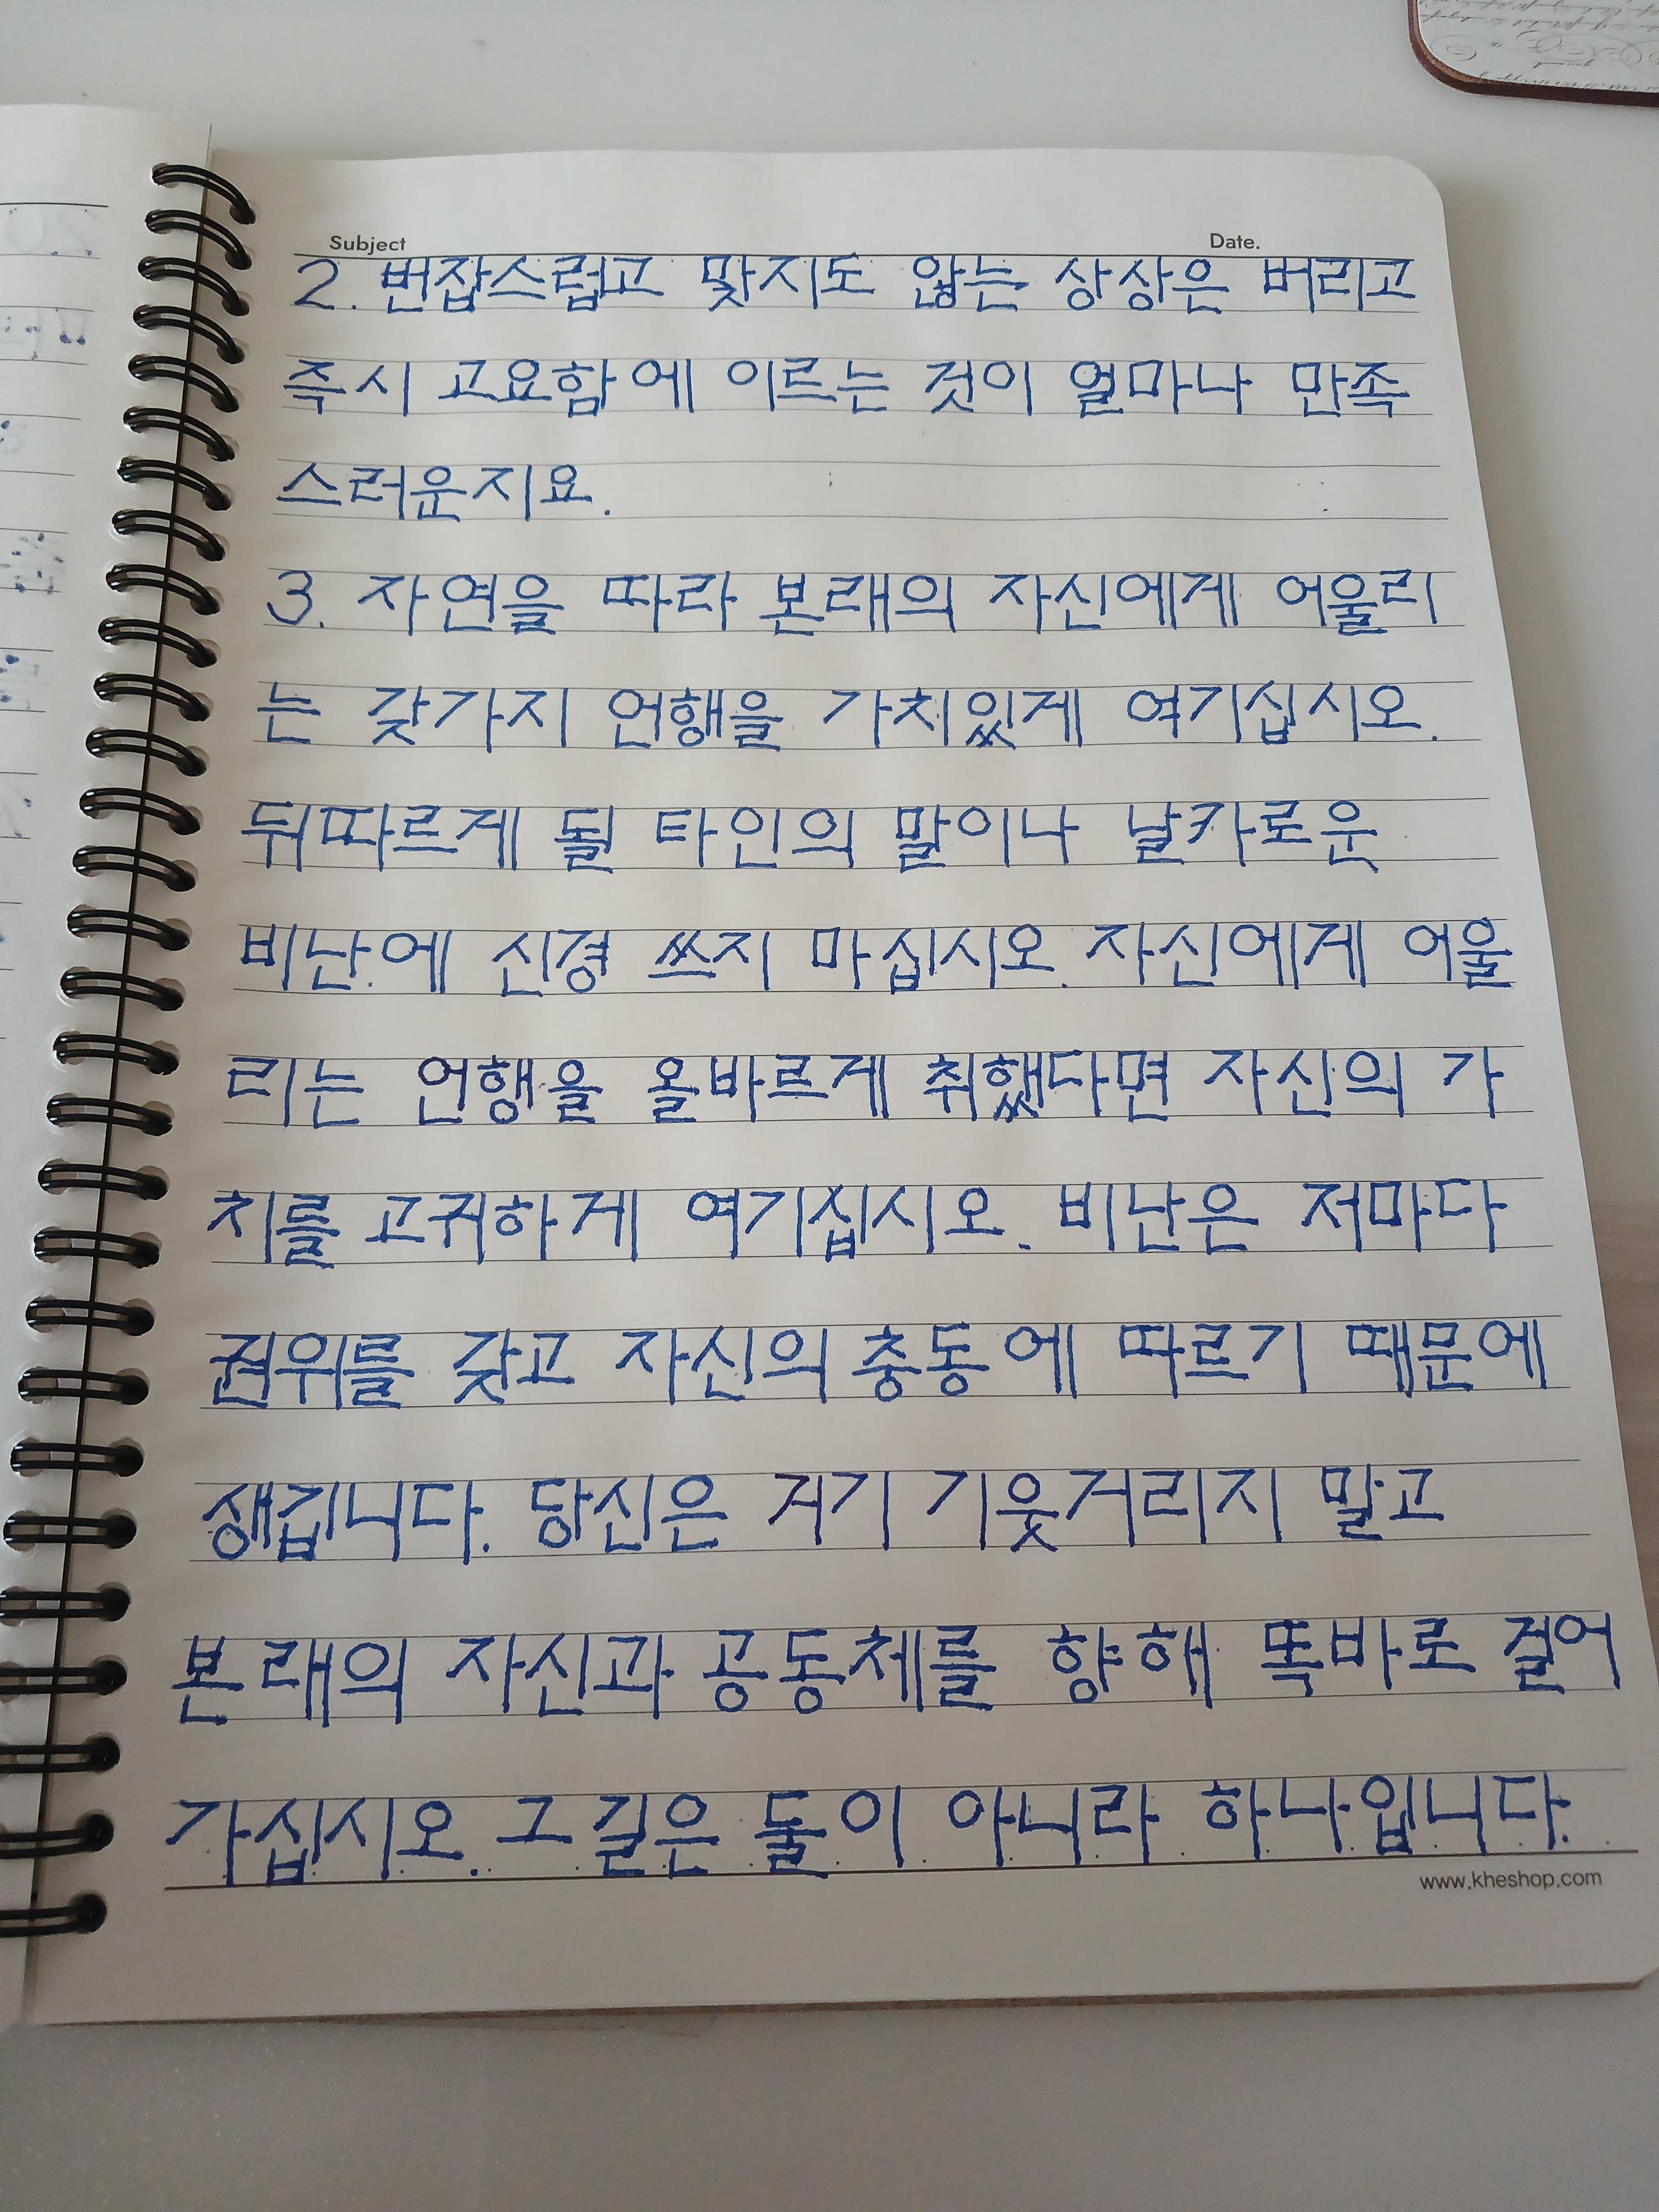 Subject
Date.
2. 번잡스럽고 맞지도 않는 상상은 버리고
즉시 고요함에 이르는 것이 얼마나 만족
스러운지요.
3. 자연을 따라 본래의 자신에게 어울리
는 갖가지 언행을 가치있게 여기십시오.
뒤따르게 될 타인의 말이나 날카로운
비난에 신경 쓰지 마십시오. 자신에게 어울
리는 언행을 올바르게 취했다면 자신의 가
치를 고귀하게 여기십시오. 비난은 저마다
권위를 갖고 자신의 충동에 따르기 때문에
생깁니다. 당신은 거기 기웃거리지 말고
본래의 자신과 공동체를 향해 똑바로 걸어
가십시오. 그 길은 둘이 아니라 하나입니다.
www.kheshop.com